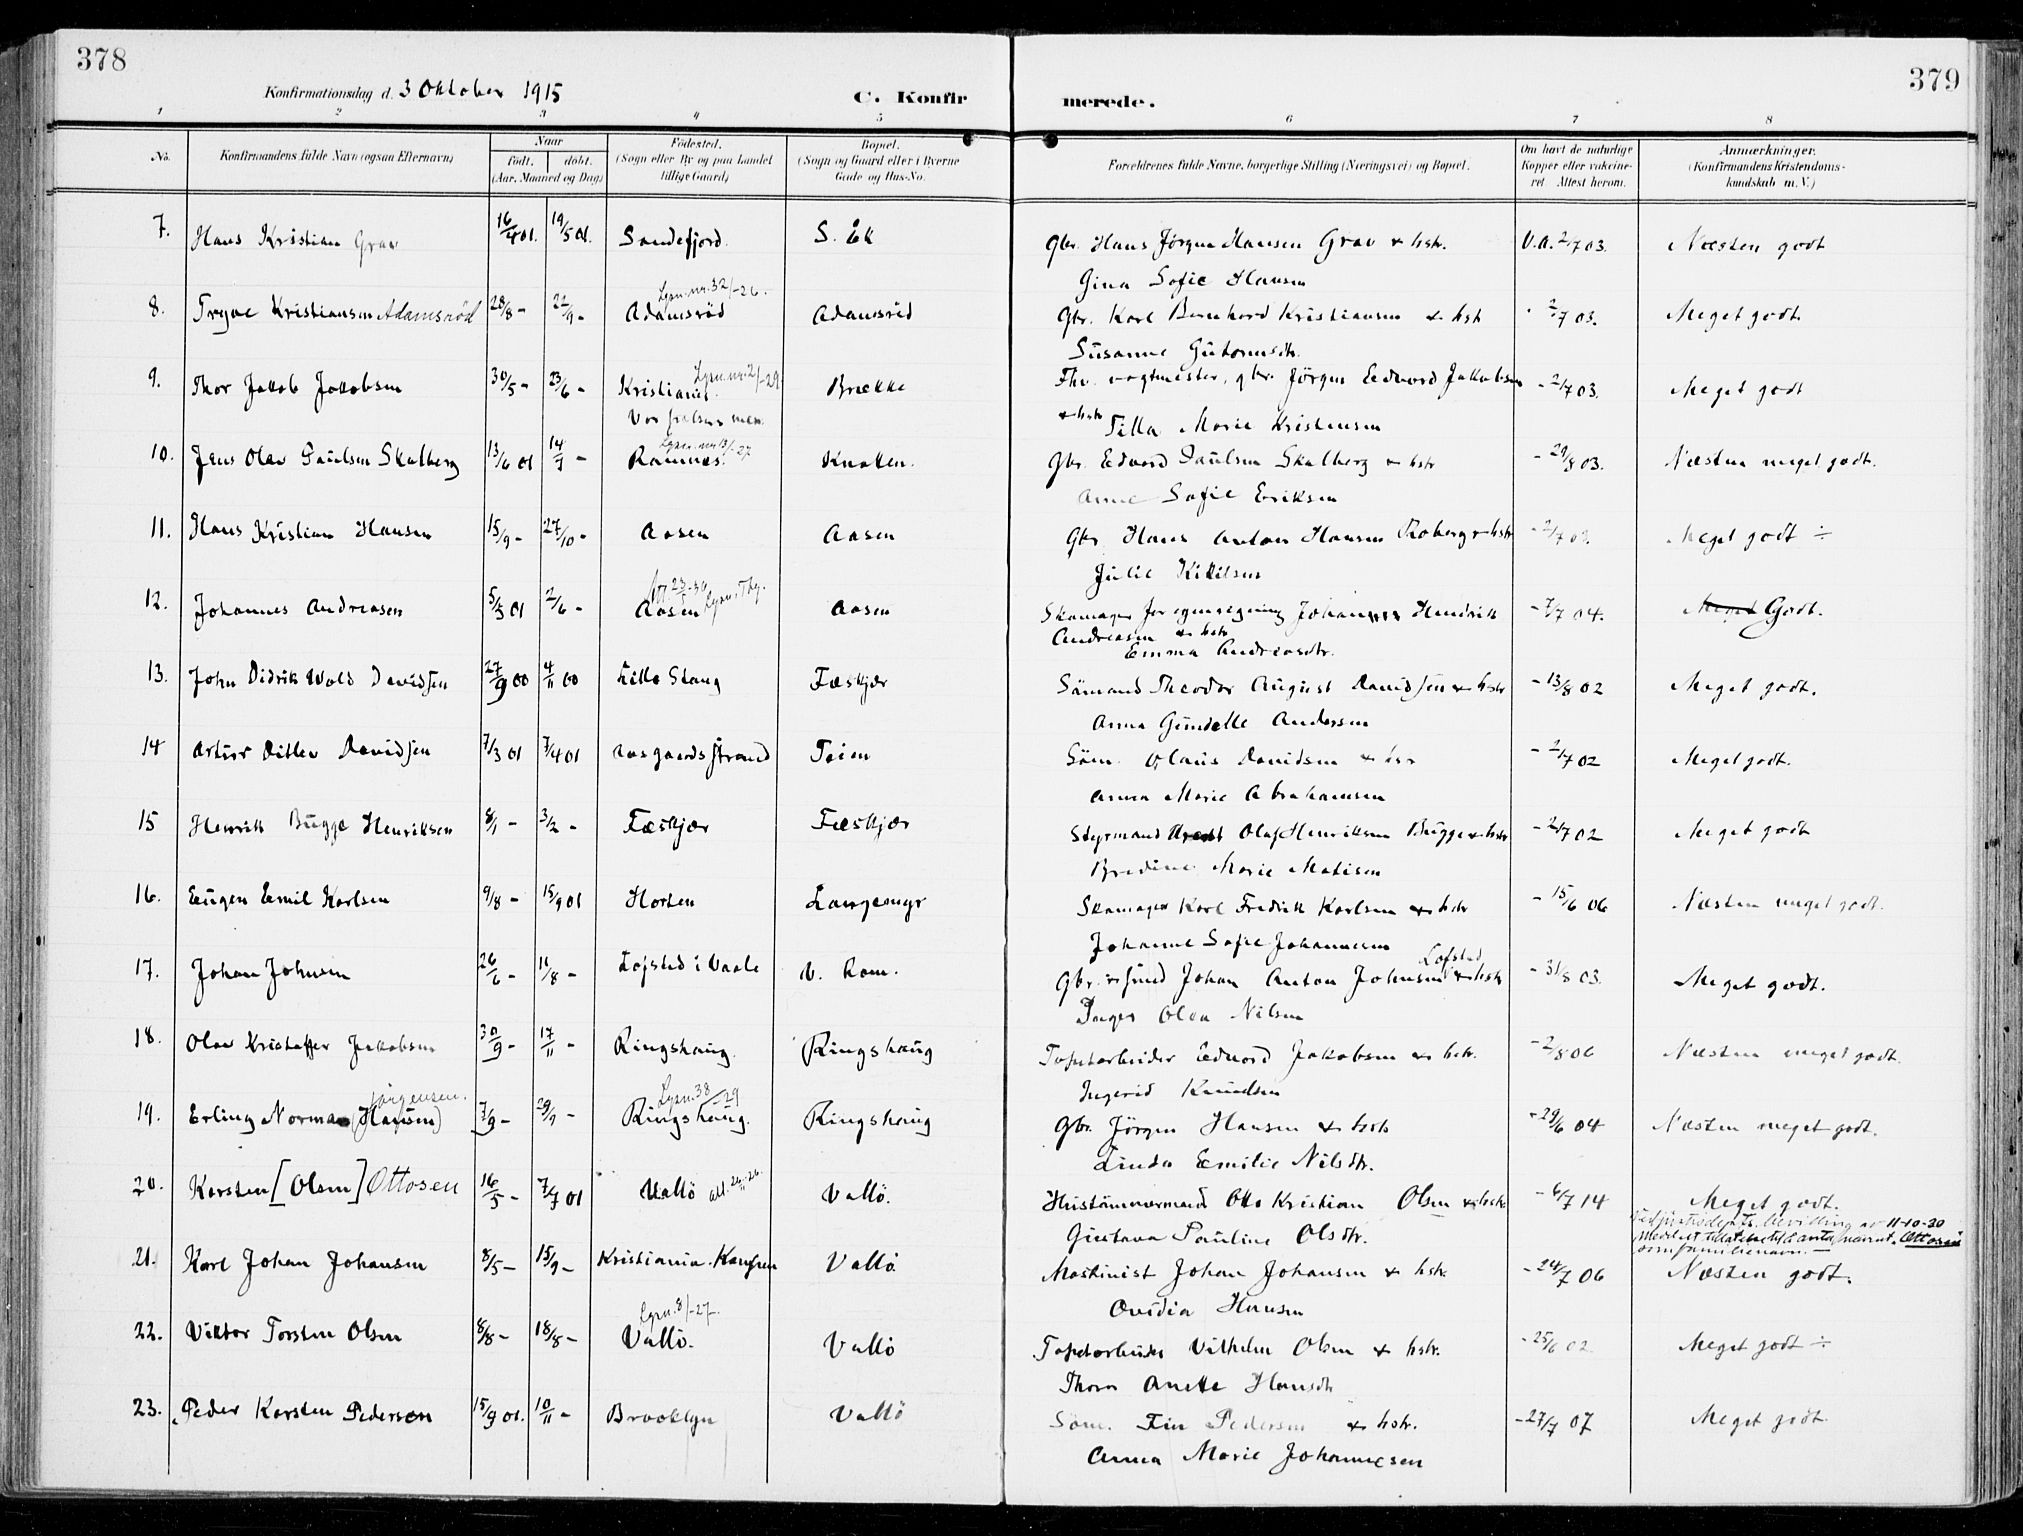 378
379
Konfirmationsdag d. 3 Oktober 1915
C. Konfir merede.
1 2 3 4 5 6 7 8
No. Konfirmandens fulde Navn (ogsaa Efternavn) Naar født. døbt. (Aar, Maaned og Dag) Fødested. (Sogn eller By og paa Landet tillige Gaard) Bopæl. (Sogn og Gaard eller i Byerne Gade og Hus-No. Forældrenes fulde Navne, borgerlige Stilling (Næringsvei) og Bopæl. Om havt de naturlige Kopper eller vakcineret. Attest herom. Anmærkninger. (Konfirmandens Kristendomskundskab m. V.)
7. Hans Kristian Grav 16/4 01. 19/5 01. Sandefjord. S. Ek Gbr. Hans Jørgen Hansen Grav & hstr. V.A. 2/7 03. Næsten godt
Gina Sofie Hansen
Lysn. nr. 32/-26.
8. Trygve Kristiansen Adamsrød 28/8 - 22/9 - Adamsrød Adamsrød Gbr. Karl Bernhard Kristiansen & hst 2/7 03. Meget godt.
Susanne Gutormsdtr.
Lysn. nr. 2/-29
9. Thor Jakob Jakobsen 30/5 - 23/6 - Kristiania Brække Fhv. vagtmester, gbr. Jørgen Edvard Jakobsen - 2/7 03. Meget godt
Vor frelsers men. & hstr Tilla Marie Kristensen
Lysn. nr 13/-27
10. Jens Olav Paulsen Skalberg 13/6 01 14/7 - Ramnes. Knatten. Gbr. Edvard Paulsen Skalberg & hstr - 29/8 03. Næsten meget godt.
Anne Sofie Eriksen
11. Hans Kristian Hansen 15/9 - 27/10 - Aasen Aasen Gbr. Hans Anton Hansen & hstr - 2/7 Meget godt ÷
Julie Kittilsen
12. Johannes Andreasen 5/5 01 2/6 - Aasen Aasen Skomager for egenregning Johannes Hendrik - 7/7 04. Meget Godt.
Andreasen & hstr
Emma Andreasdtr.
13. John Didrik Wold Davidsen 27/9 00 4/11 00 Lille Stang Fæskjær Sømand Theodor August Davidsen & hstr - 13/8 02 Meget godt.
Anna Gundelle Andersen
14 Artur Ditlev Davidsen 7/3 01 7/4 01 Aasgaardsstrand Teien Søm. Olaus Davidsen & hstr - 2/7 02 Meget godt.
Anna Marie Abrahamsen
15 Henrik Bugge Henriksen 8/1 - 3/2 - Fæskjær Fæskjær Styrmand Olaf Henriksen Bugge & hstr - 2/7 02 Meget godt
Bredine Marie Matisen
16. Eugen Emil Karlsen 9/8 - 15/9 01 Horten Langemyr Skomager Karl Fredrik Karlsen & hstr - 15/6 06 Næsten meget godt.
Johanne Sofie Johannesen
Lofsted
17. Johan Johnsen 26/6 - 11/8 - Lofsted i Vaale V. Rom. Gbr. Johan Anton Johnsen & hstr - 31/8 03. Meget godt.
Inger Olea Nilsen
18. Olav Kristoffer Jakobsen 30/9 - 17/11 - Ringshaug. Ringshaug Tapetarbeider Edvard Jakobsen & hstr. - 2/8 06 Næsten meget godt.
Ingerid Knudsen
Jørgensen. Lysn. 38/-29
19. Erling Norman (Hansen) 7/9 - 29/9 - Ringshaug. Ringshaug Gbr. Jørgen Hansen & hstr - 29/6 04 Næsten meget godt.
Linda Emilie Nilsdtr.
20. Karsten [Olsen] Ottosen 16/5 - 7/7 01 Vallø Vallø. Hustømmermand Otto Kristian Olsen & hstr. - 6/7 14 Meget godt.
Gustava Pauline Olsdtr. Ved justisdepts. bevilling av 11-10-20
meddelt tillatelse til å anta navnet Ottosen
som familienavn. —
21. Karl Johan Johansen 8/5 - 15/9 - Kristiania. Vallø Maskinist Johan Johansen & hstr. - 24/7 06 Næsten godt.
Ovidia Hansen
Lysn. 8/-27
22. Viktor Torsten Olsen 8/8 - 18/8 - Vallø. Vallø Tapetarbeider Vilhelm Olsen & hstr. - 25/6 02 Meget godt ÷
Thora Anette Hansdtr
23. Peder Karsten Pedersen 15/9 01. 10/11 - Brooklyn Vallø Søm. Fin Pedersen & hstr. - 27/7 07 Meget godt
Anna Marie Johannesen